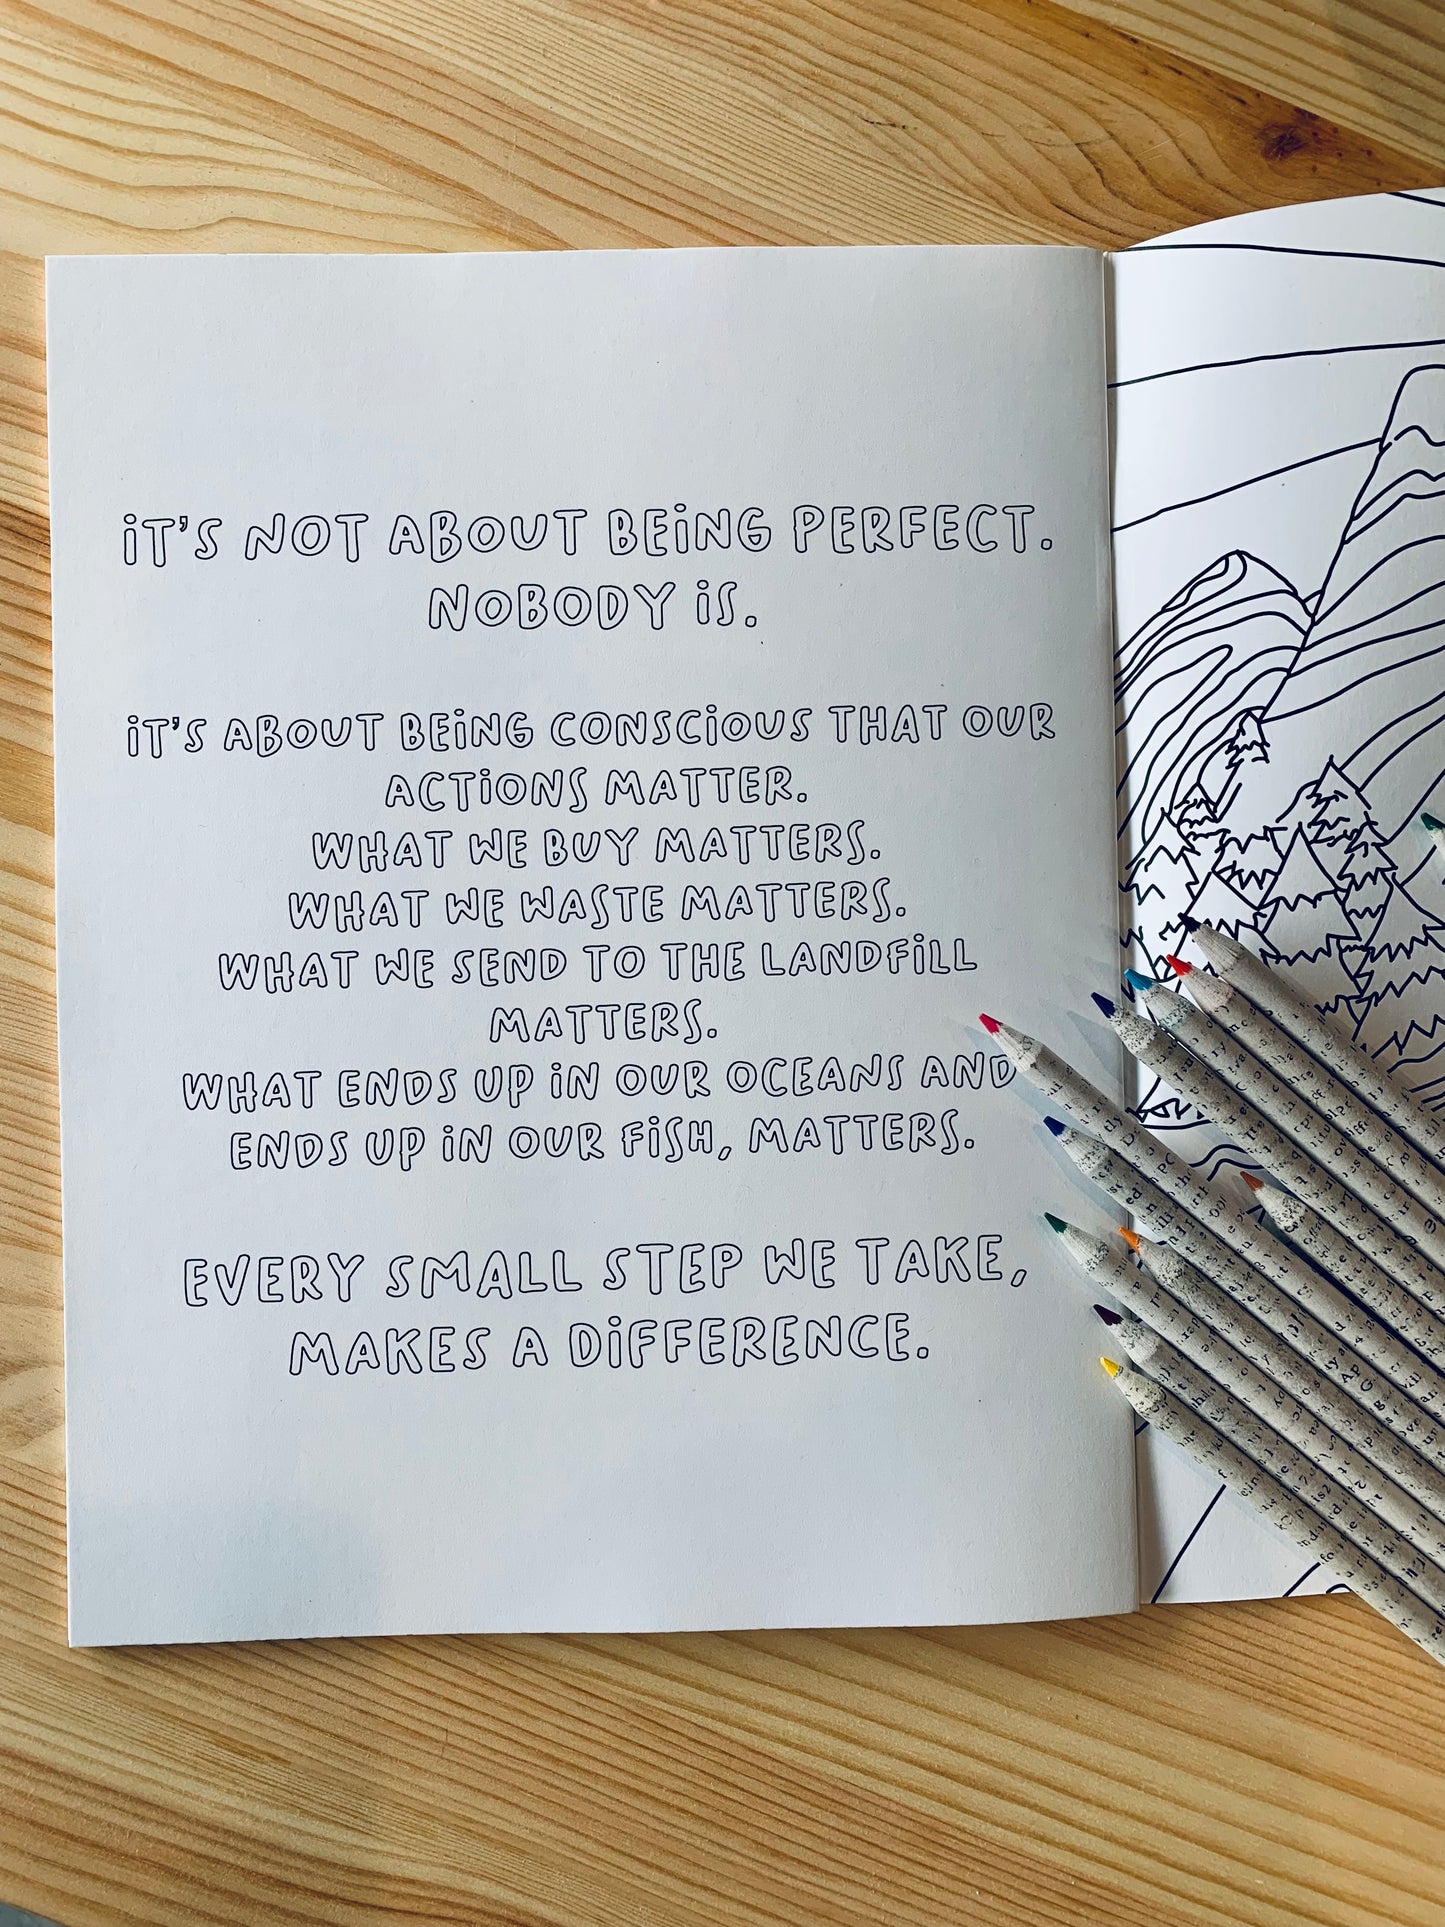 iT'S NOT ABOUT BEiNG PERFECT.
NOBODY iS.
iT'S ABOUT BEiNG CONSCiOUS THAT OUR
ACTiONS MATTER.
WHAT WE BUY MATTERS.
WHAT WE WASTE MATTERS.
WHAT WE SEND TO THE LANDFiLL
MATTERS.
WHAT ENDS UP iN OUR OCEANS AND
ENDS UP iN OUR FiSH, MATTERS.
EVERY SMALL STEP WE TAKE,
MAKES A DiFFERENCE.